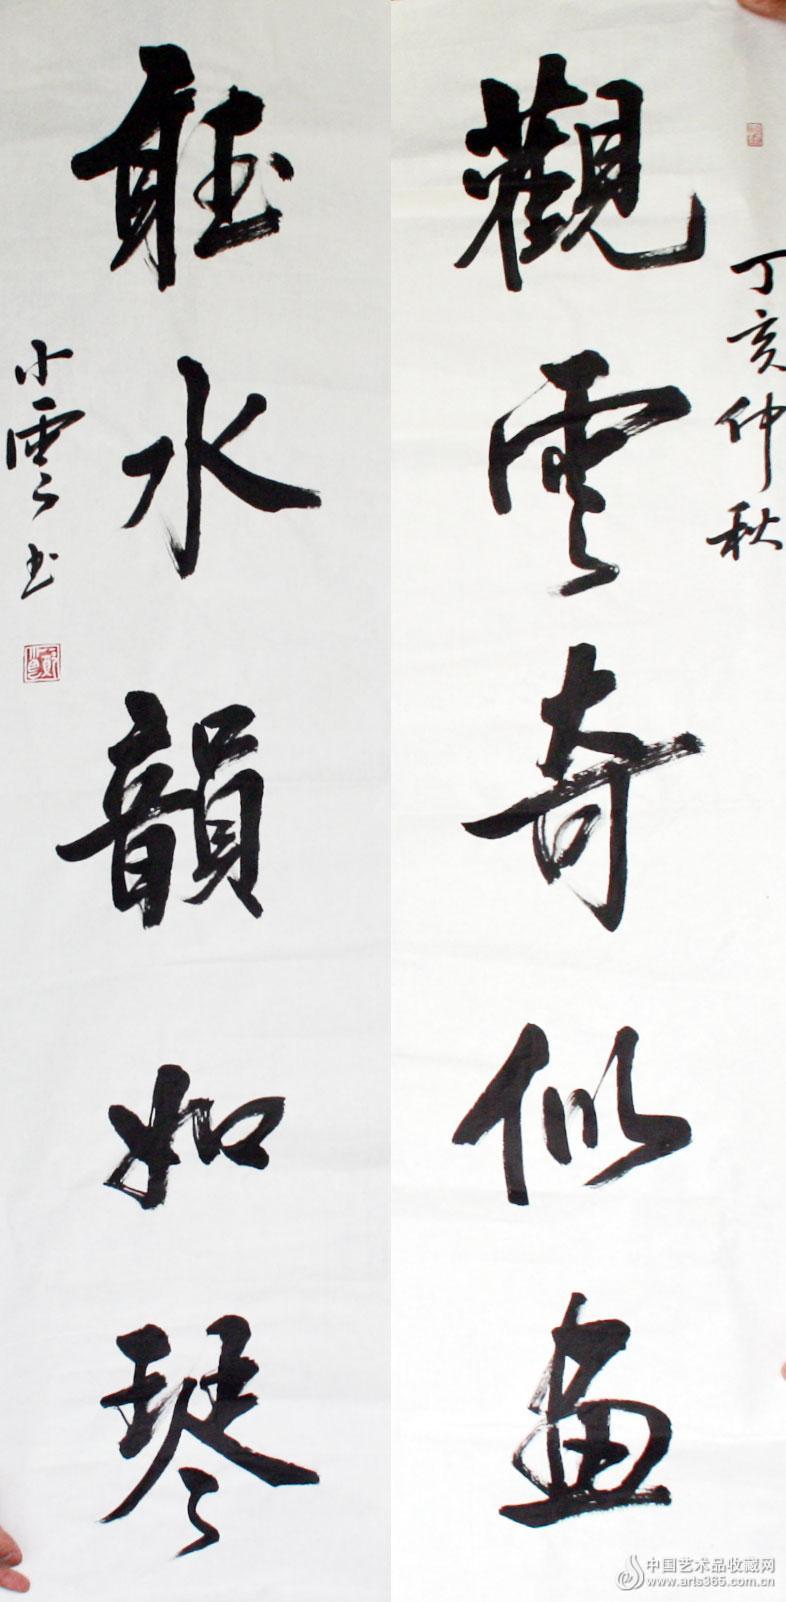 丁亥仲秋
觀雲奇似画
聽水韻如琴
小雲书
中国艺术品收藏网
www.arts365.com.cn